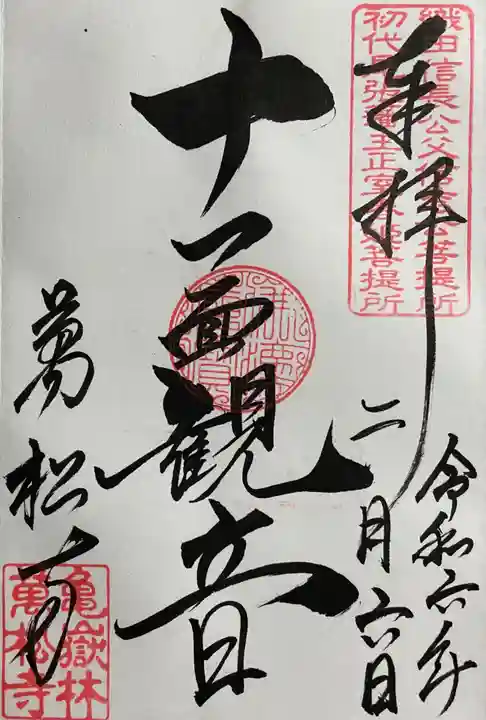 奉拝
織田信長公父信秀公菩提所
初代尾張藩主正室春姫菩提所
令和六年
二月六日
十一面観音
萬松寺
亀嶽林
萬松寺